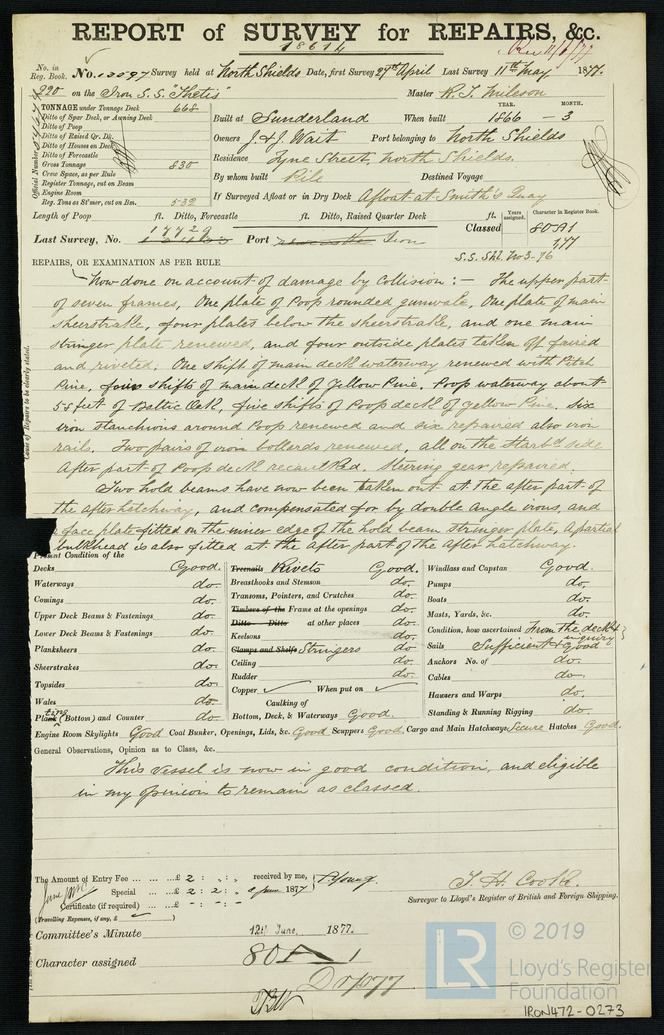 REPORT of SURVEY for REPAIRS, &c.
18614
No. in Reg. Book. No. 12097 Survey held at North Shields Date, first Survey 27th April Last Survey 11th May 1877.
220 on the Iron S.S. "Thetis" Master R. T. Mileson
TONNAGE under Tonnage Deck 668
Ditto of Spar Deck, or Awning Deck
Ditto of Poop
Ditto of Raised Qr. Dk.
Ditto of Houses on Deck
Ditto of Forecastle
Gross Tonnage 830
Crew Space, as per Rule
Register Tonnage, cut on Beam
Engine Room
Reg. Tons as St'mer, cut on Bm. 532
Official Number
YEAR. MONTH.
Built at Sunderland When built 1866 - 3
Owners J & J. Wait Port belonging to North Shields
Residence Tyne Street, North Shields.
By whom built Pile Destined Voyage
If Surveyed Afloat or in Dry Dock Afloat at Smith's Quay
Length of Poop ft. Ditto, Forecastle ft. Ditto, Raised Quarter Deck ft.
Years assigned. Character in Register Book.
17729
Last Survey, No. Port Iron Classed 80A1
1,77
S.S. Shl. No3-76
REPAIRS, OR EXAMINATION AS PER RULE
Cause of Repairs to be clearly stated.
Now done on account of damage by Collision :- The upper part
of seven frames, One plate of Poop rounded gunwale, One plate of main
sheerstrake, four plates below the sheerstrake, and one main
stringer plate renewed, and four outside plates taken off faired
and riveted. One shift of main deck waterway renewed with Pitch
Pine, four shifts of main deck of Yellow Pine. Poop waterway about
55 feet of Baltic Oak, five shifts of Poop deck of yellow Pine. Six
iron stanchions around Poop renewed and six repaired also iron
rails. Two pairs of iron bollards renewed, all on the Starbd side
After part of Poop deck recaulked. Steering gear repaired.
Two hold beams have now been taken out at the after part of
the after hatchway, and compensated for by double Angle irons, and
face plate fitted on the inner edge of the hold beam stringer plate, A partial
bulkhead is also fitted at the after part of the after hatchway.
Present Condition of the
Decks Good.
Waterways do.
Comings do.
Upper Deck Beams & Fastenings do.
Lower Deck Beams & Fastenings do.
Planksheers do.
Sheerstrakes do.
Topsides do.
Wales do.
Plating (Bottom) and Counter do.
Treenails Rivets Good.
Breasthooks and Stemson do.
Transoms, Pointers, and Crutches do.
Timbers of the Frame at the openings do.
Ditto Ditto at other places do.
Keelsons do.
Clamps and Shelfs Stringers do.
Ceiling do.
Rudder do.
Copper When put on
Caulking of
Bottom, Deck, & Waterways Good.
Windlass and Capstan Good.
Pumps do.
Boats do.
Masts, Yards, &c. do.
Condition, how ascertained From the deck & inquiry
Sails Sufficient & good
Anchors No. of do.
Cables do.
Hawsers and Warps do.
Standing & Running Rigging do.
Engine Room Skylights Good Coal Bunker, Openings, Lids, &c. Good Scuppers Good Cargo and Main Hatchways Secure Hatches Good.
General Observations, Opinion as to Class, &c.
This vessel is now in good condition, and eligible
in my opinion to remain as classed.
The Amount of Entry Fee ... £ 2 : " : " received by me,
Special ... £ 2 : 2 : " June 1877 P. Young.
Certificate (if required) ... £ - : - : -
(Travelling Expenses, if any, £ )
T. H. Cooke.
Surveyor to Lloyd's Register of British and Foreign Shipping.
Committee's Minute 12th June, 1877.
Character assigned 80 A 1
© 2019
LR
Lloyd's Register
Foundation
IRON472-0273